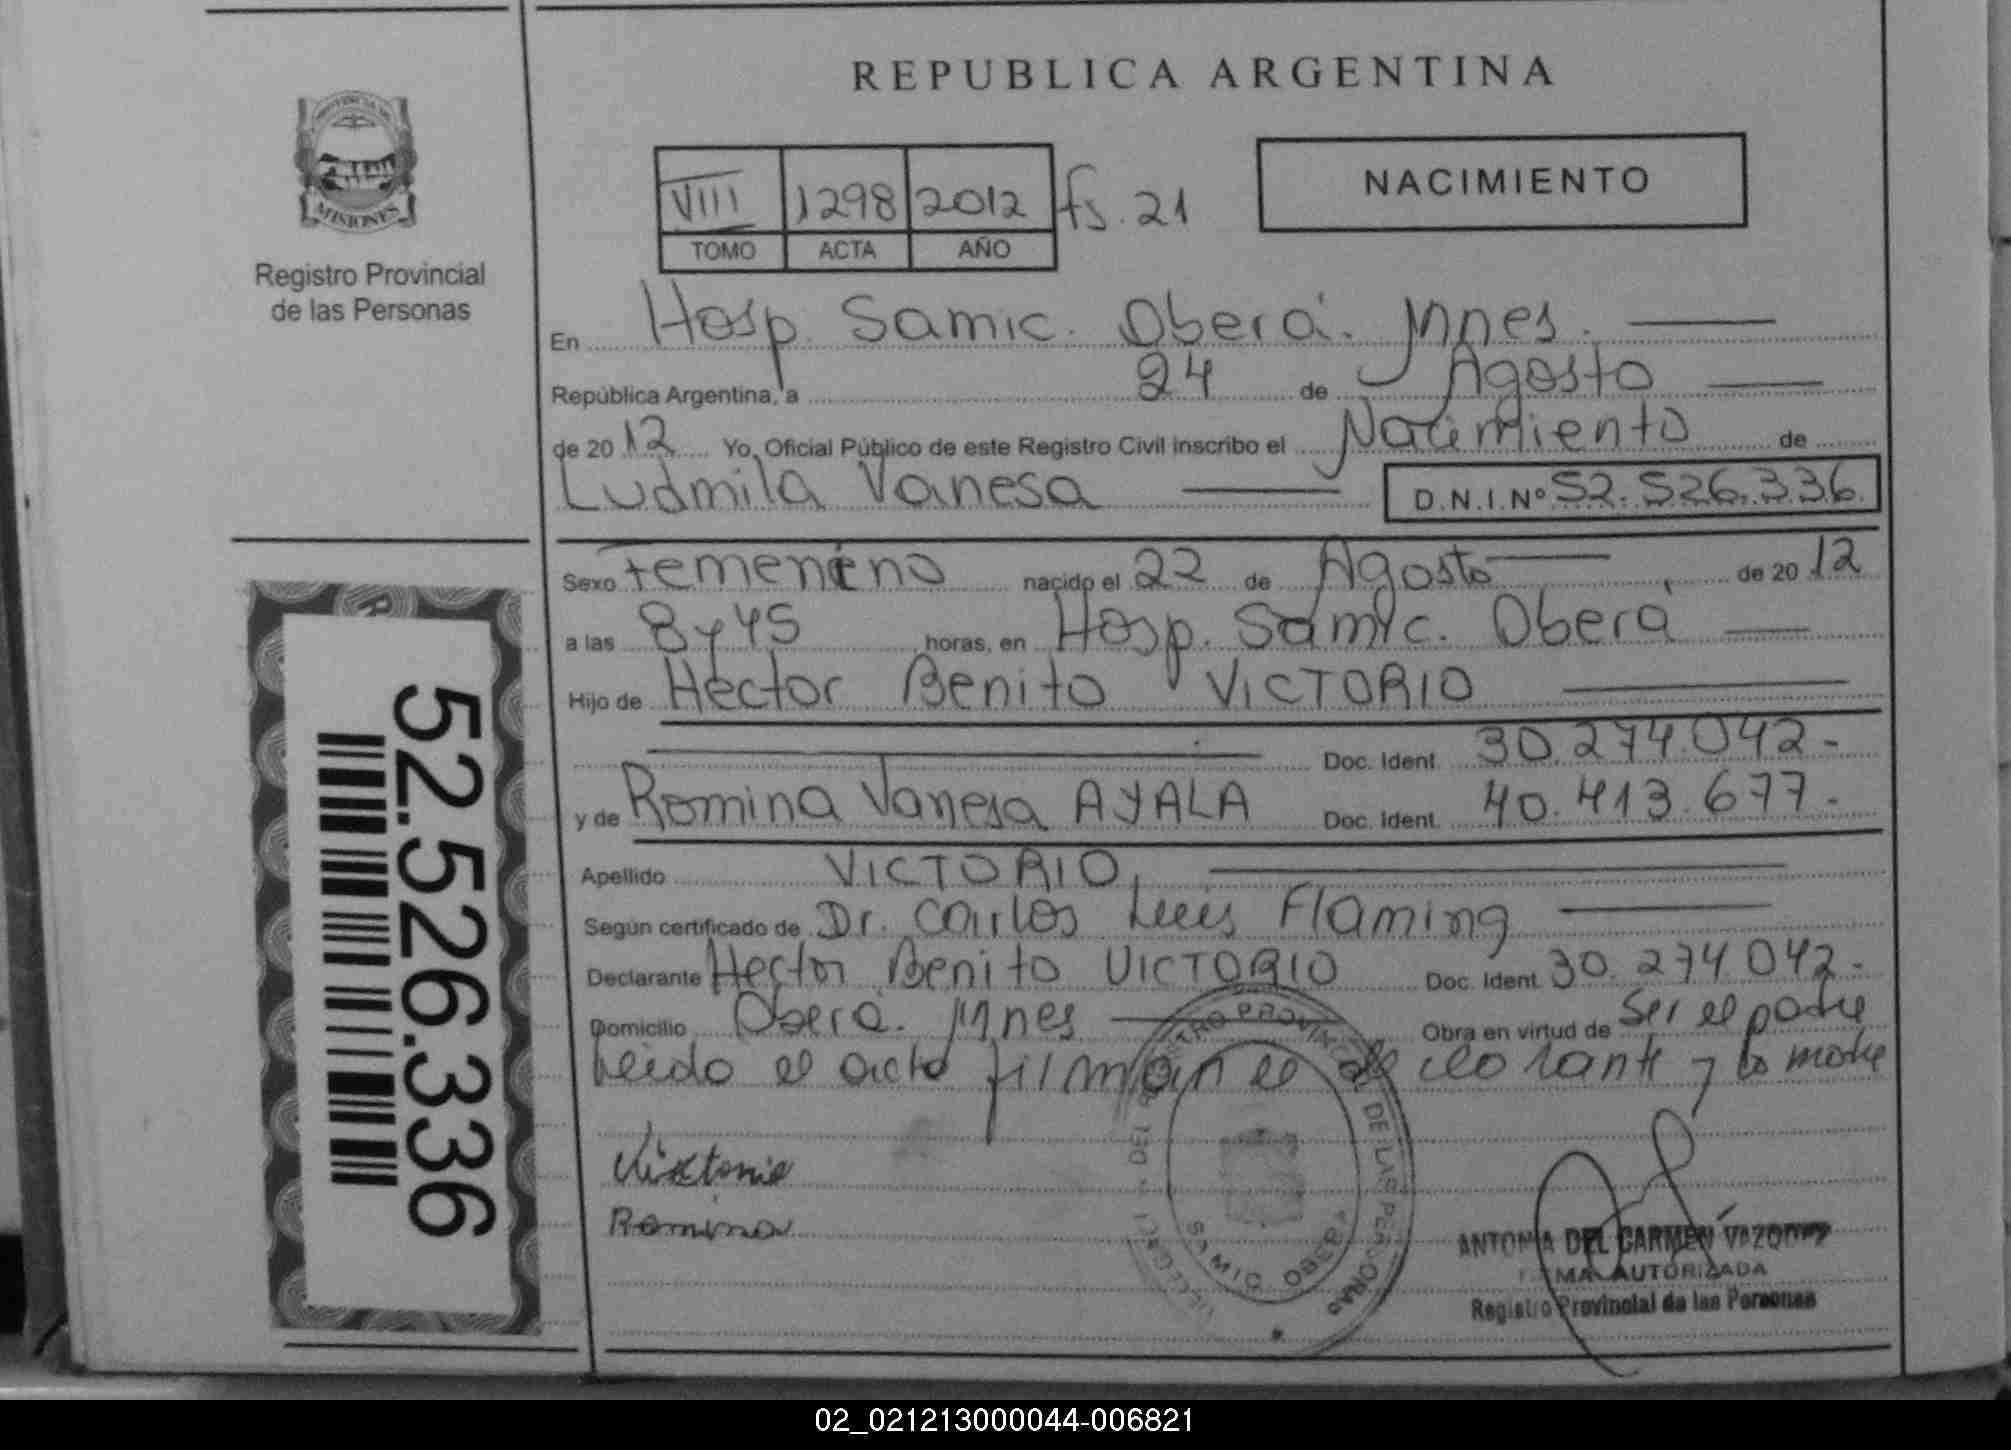 REPUBLICA ARGENTINA
PROVINCIA DE
MISIONES
Registro Provincial
de las Personas
VIII 1298 2012 fs. 21
TOMO ACTA AÑO
NACIMIENTO
En Hosp. Samic. Oberá. Mnes.
República Argentina, a 24 de Agosto
de 2012 Yo, Oficial Público de este Registro Civil inscribo el Nacimiento de
Ludmila Vanesa D.N.I.Nº 52.526.336.
Sexo Femenino nacido el 22 de Agosto de 2012
a las 8 y 45 horas, en Hosp. Samic. Oberá
Hijo de Hector Benito VICTORIO
Doc. Ident. 30.274.042-
y de Romina Vanesa AYALA Doc. Ident. 40.413.677-
Apellido VICTORIO,
Según certificado de Dr. Carlos Luis Flaming
Declarante Hector Benito VICTORIO Doc. Ident. 30.274.042-
Domicilio Oberá. Mnes Obra en virtud de Ser el padre
Leido el acta firman el declarante y la madre
Victorio
Romina
REGISTRO PROVINCIAL DE LAS PERSONAS
SAMIC OBERA
ANTONIA DEL CARMEN VAZQUEZ
FIRMA AUTORIZADA
Registro Provincial de las Personas
52.526.336
02_021213000044-006821